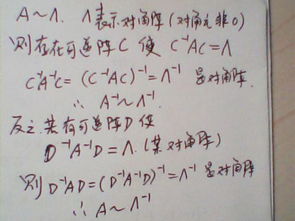 A~Λ. Λ表示对角阵(对角元非0)
则存在可逆阵C 使 C⁻¹AC=Λ
C⁻¹A⁻¹C=(C⁻¹AC)⁻¹=Λ⁻¹ 是对角阵.
∴ A⁻¹~Λ⁻¹.
反之若有可逆阵D使
D⁻¹A⁻¹D=Λ.(某对角阵)
则 D⁻¹AD=(D⁻¹A⁻¹D)⁻¹=Λ⁻¹是对角阵
∴ A~Λ⁻¹